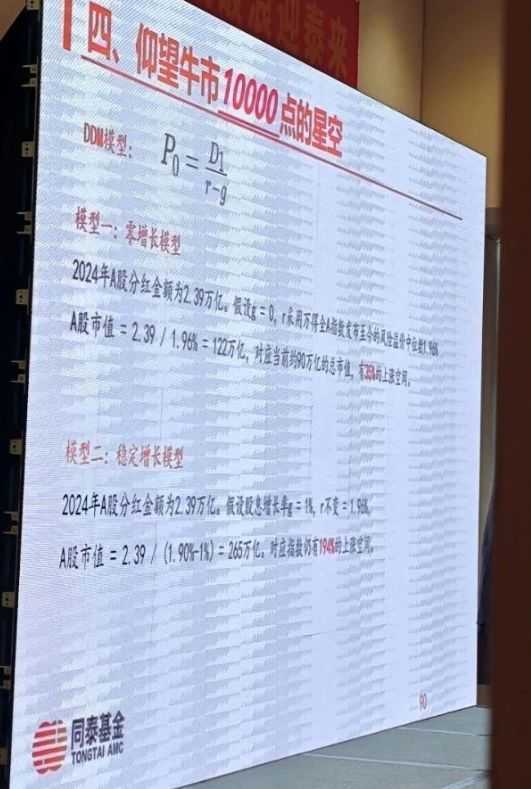 迎泰来
四、仰望牛市10000点的星空
DDM模型： P₀ = D₁ / r-g
模型一：零增长模型
2024年A股分红金额为2.39万亿。假设g = 0，r采用万得全A指数发布至今的风险溢价中位数1.96%
A股市值 = 2.39 / 1.96% = 122万亿，对应当前约90万亿的总市值，有35%的上涨空间。
模型二：稳定增长模型
2024年A股分红金额为2.39万亿。假设股息增长率g = 1%，r不变 = 1.96%，
A股市值 = 2.39 / (1.90%-1%) = 265万亿。对应指数仍有194%的上涨空间。
90
同泰基金
TONGTAI AMC